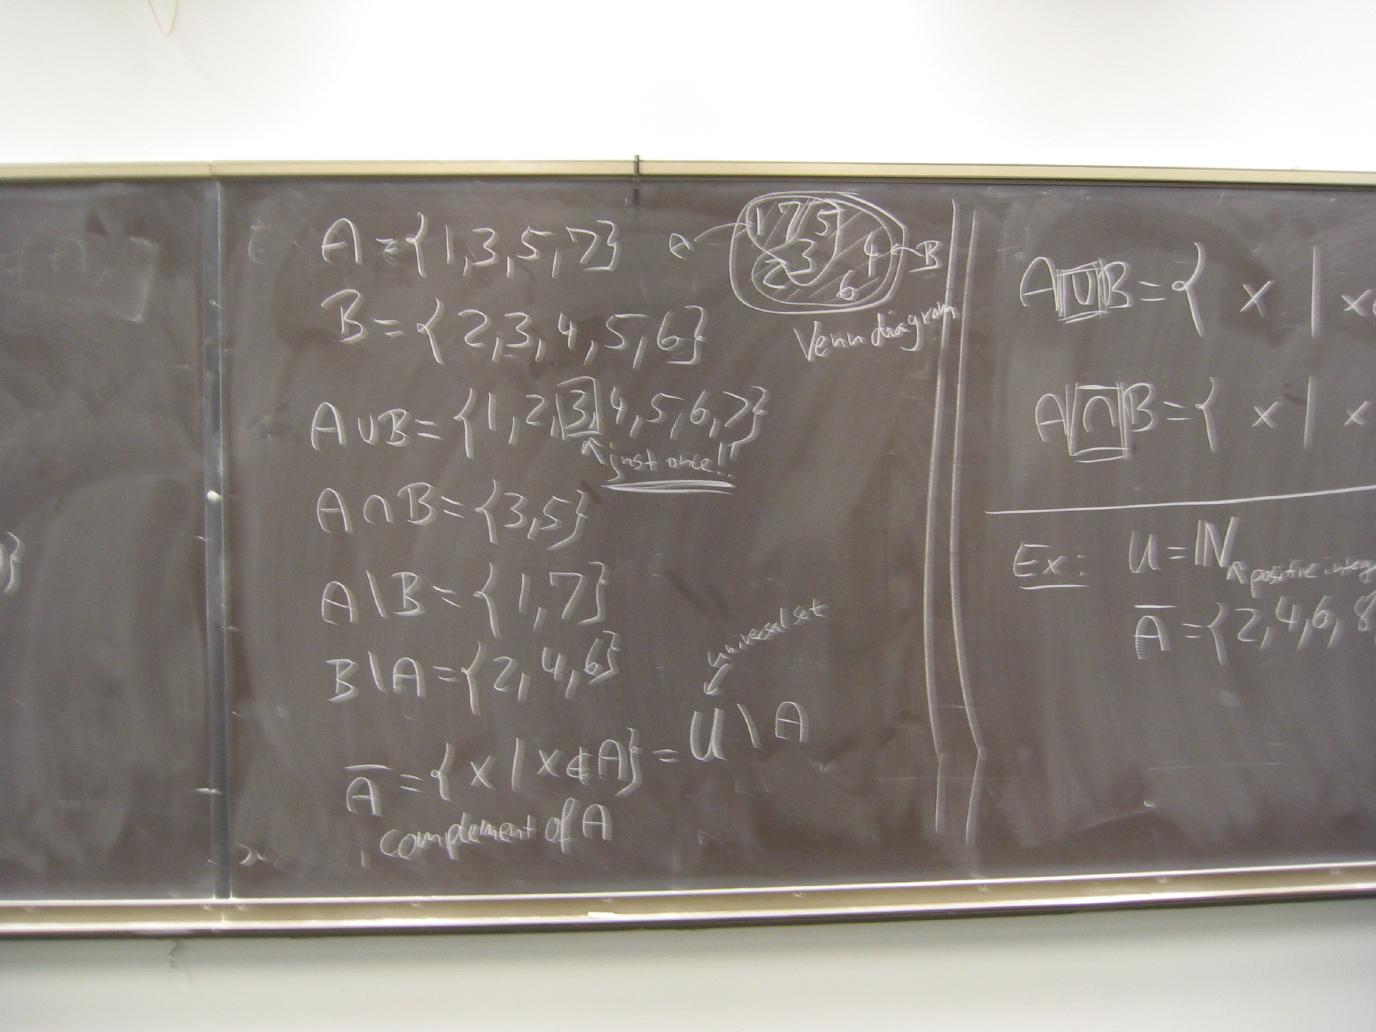 A = {1,3,5,7}
B = {2,3,4,5,6}
A∪B = {1,2,3,4,5,6,7}
just once!!
A∩B = {3,5}
A\B = {1,7}
B\A = {2,4,6}
universal set
A̅ = {x | x∉A} = U \ A
complement of A
1 7 5
A 4 B
2 3
6
Venn diagram
A∪B = { x | x∈
A∩B = { x | x
Ex: U = ℕ
positive integ
A̅ = {2,4,6,8,
}